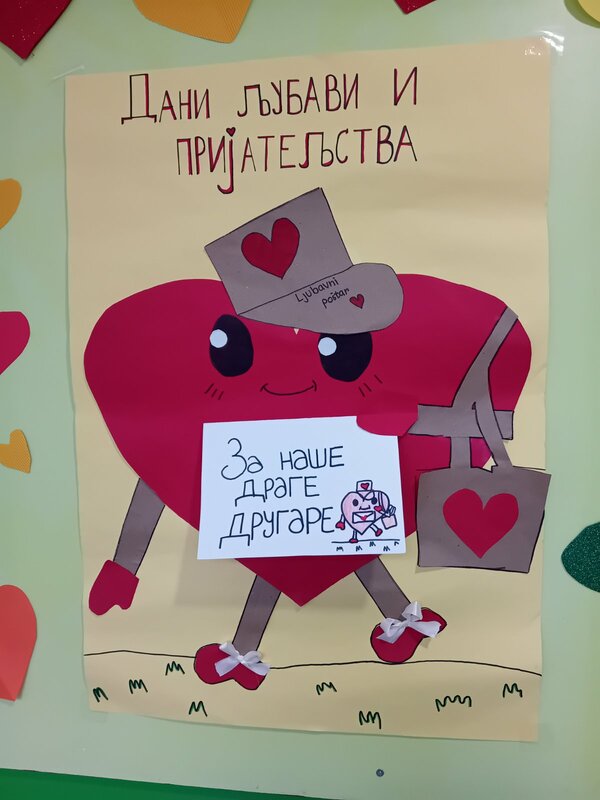 Дани љубави и
пријатељства
Ljubavni
poštar
За наше
драге
другаре